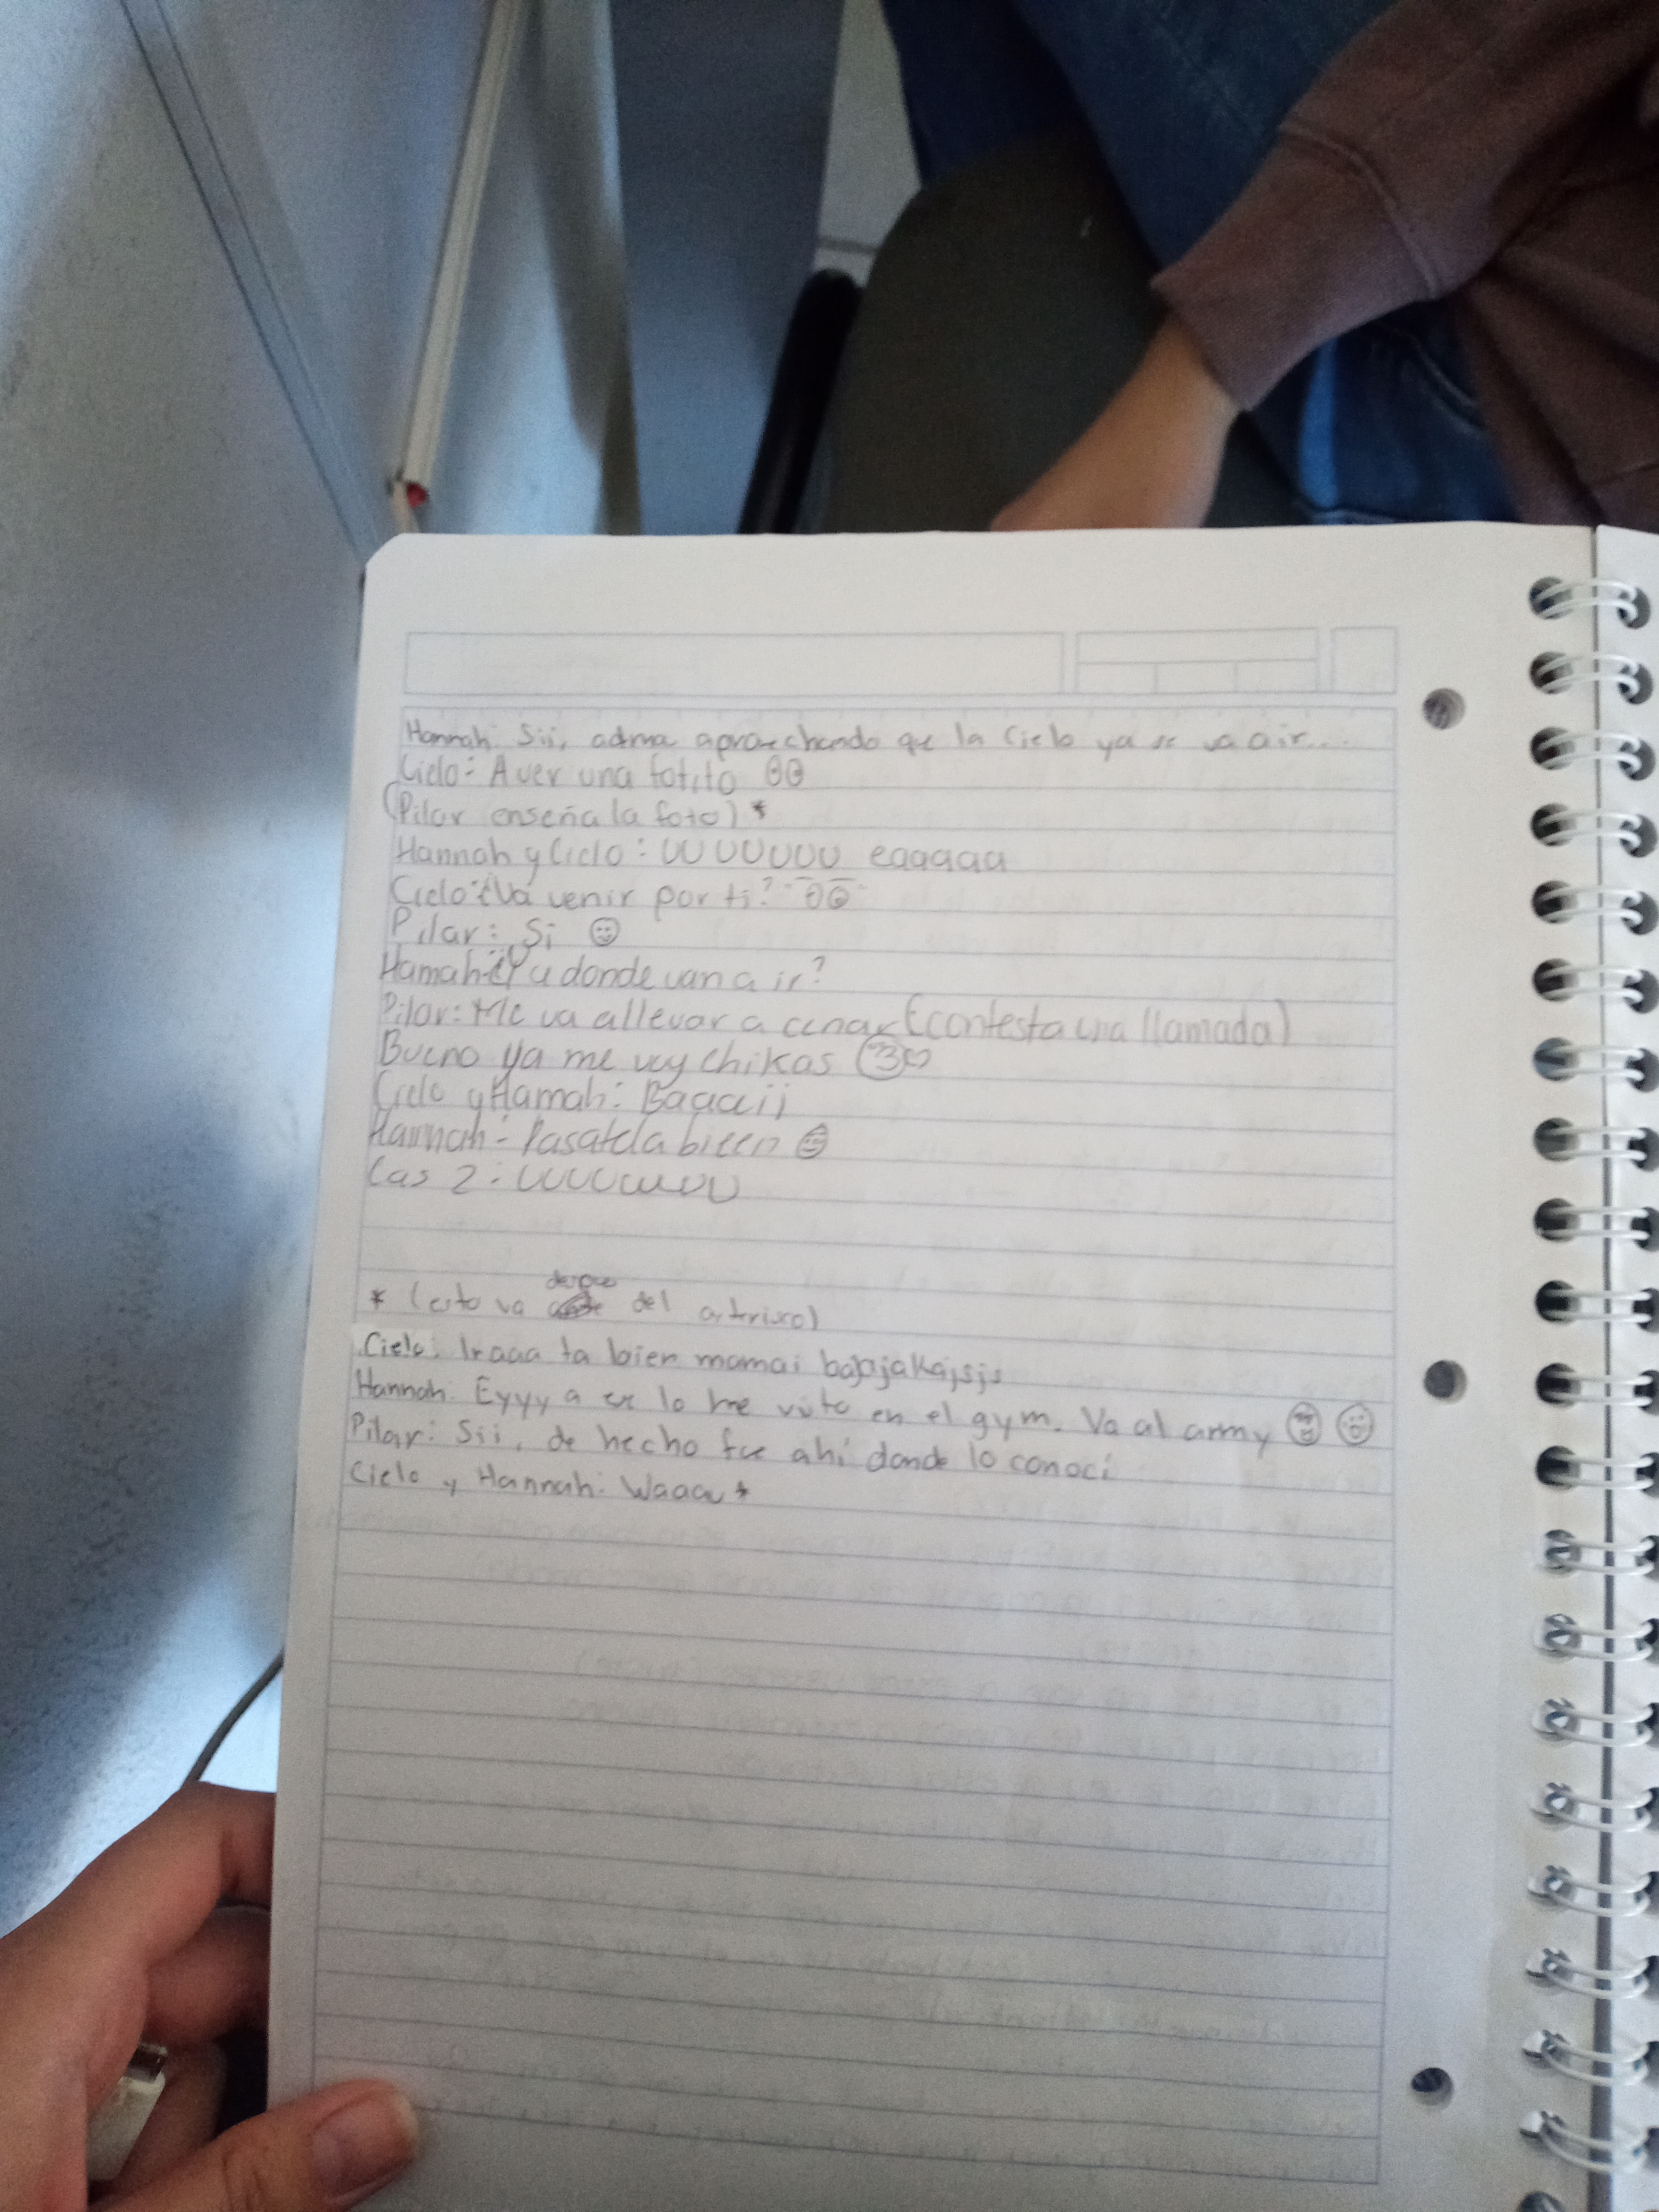 Hannah: Sii, adma aprovechando qe la Cielo ya se va a ir....
Cielo: A ver una fotito
(Pilar enseña la foto) *
Hannah y Cielo: UUUUUUU eaaaaaa
Cielo: ¿Va venir por ti?
Pilar: Si
Hannah: ¿Y a donde van a ir?
Pilar: Me va allevar a cenar (contesta una llamada)
Bueno ya me voy chikas
Cielo y Hannah: Baaaii
Hannah: Pasatela bieen
Las 2: UUUUUUUU
* (esto va del
Cielo: Iraaa ta bien mamai
Hannah: Eyyy a ese lo he visto en el gym. Va al army
Pilar: Sii, de hecho fue ahí donde lo conocí
Cielo y Hannah: Waaau *